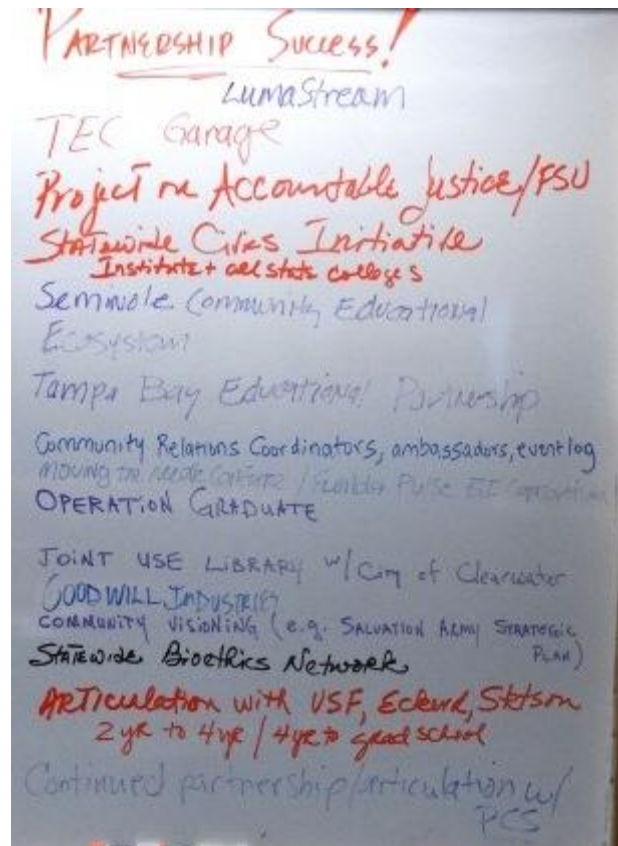 PARTNERSHIP SUCCESS!
LumaStream
TEC Garage
Project on Accountable Justice/FSU
Statewide Civics Initiative
Institute + all state colleges
Seminole Community Educational
Ecosystem
Tampa Bay Educational Partnership
Community Relations Coordinators, ambassadors, event log
Moving the Needle / Pulse
OPERATION GRADUATE
JOINT USE LIBRARY w/ City of Clearwater
GOODWILL INDUSTRIES
COMMUNITY VISIONING (e.g. SALVATION ARMY STRATEGIC
PLAN)
Statewide Bioethics Network
ARTiculation with USF, Eckerd, Stetson
2 yr to 4 yr / 4 yr to grad school
Continued partnership/articulation w/
PCS